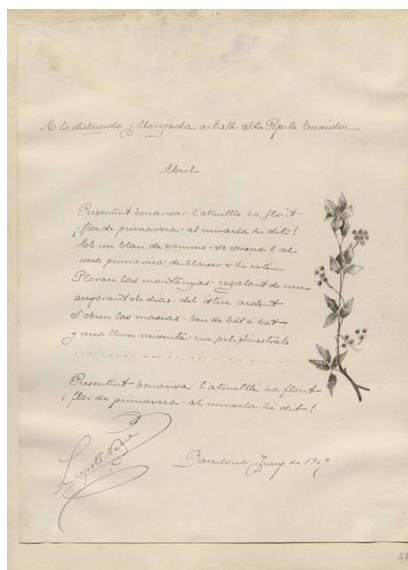 A la distingida y llorejada artista Sta Pepeta Teixidor
Abril
Pressentint bonansa - l'atmetlle ha florit -
¡flor de primavera - al mirarla hé dit!
Ab un blau de somnis - se vesteix l cel
una primavera de
Ploran las montanyas - regalant de neu
anyorant els dias - del estiu ardent
S'obren las masías - ben de bat á bat
y una llum neixenta - riu pels finestrals
Pressentint bonansa - l'atmetlle ha florit
¡flor de primavera - al mirarla hé dit!
Leopold Negre
Barcelona Juny de 1909
47